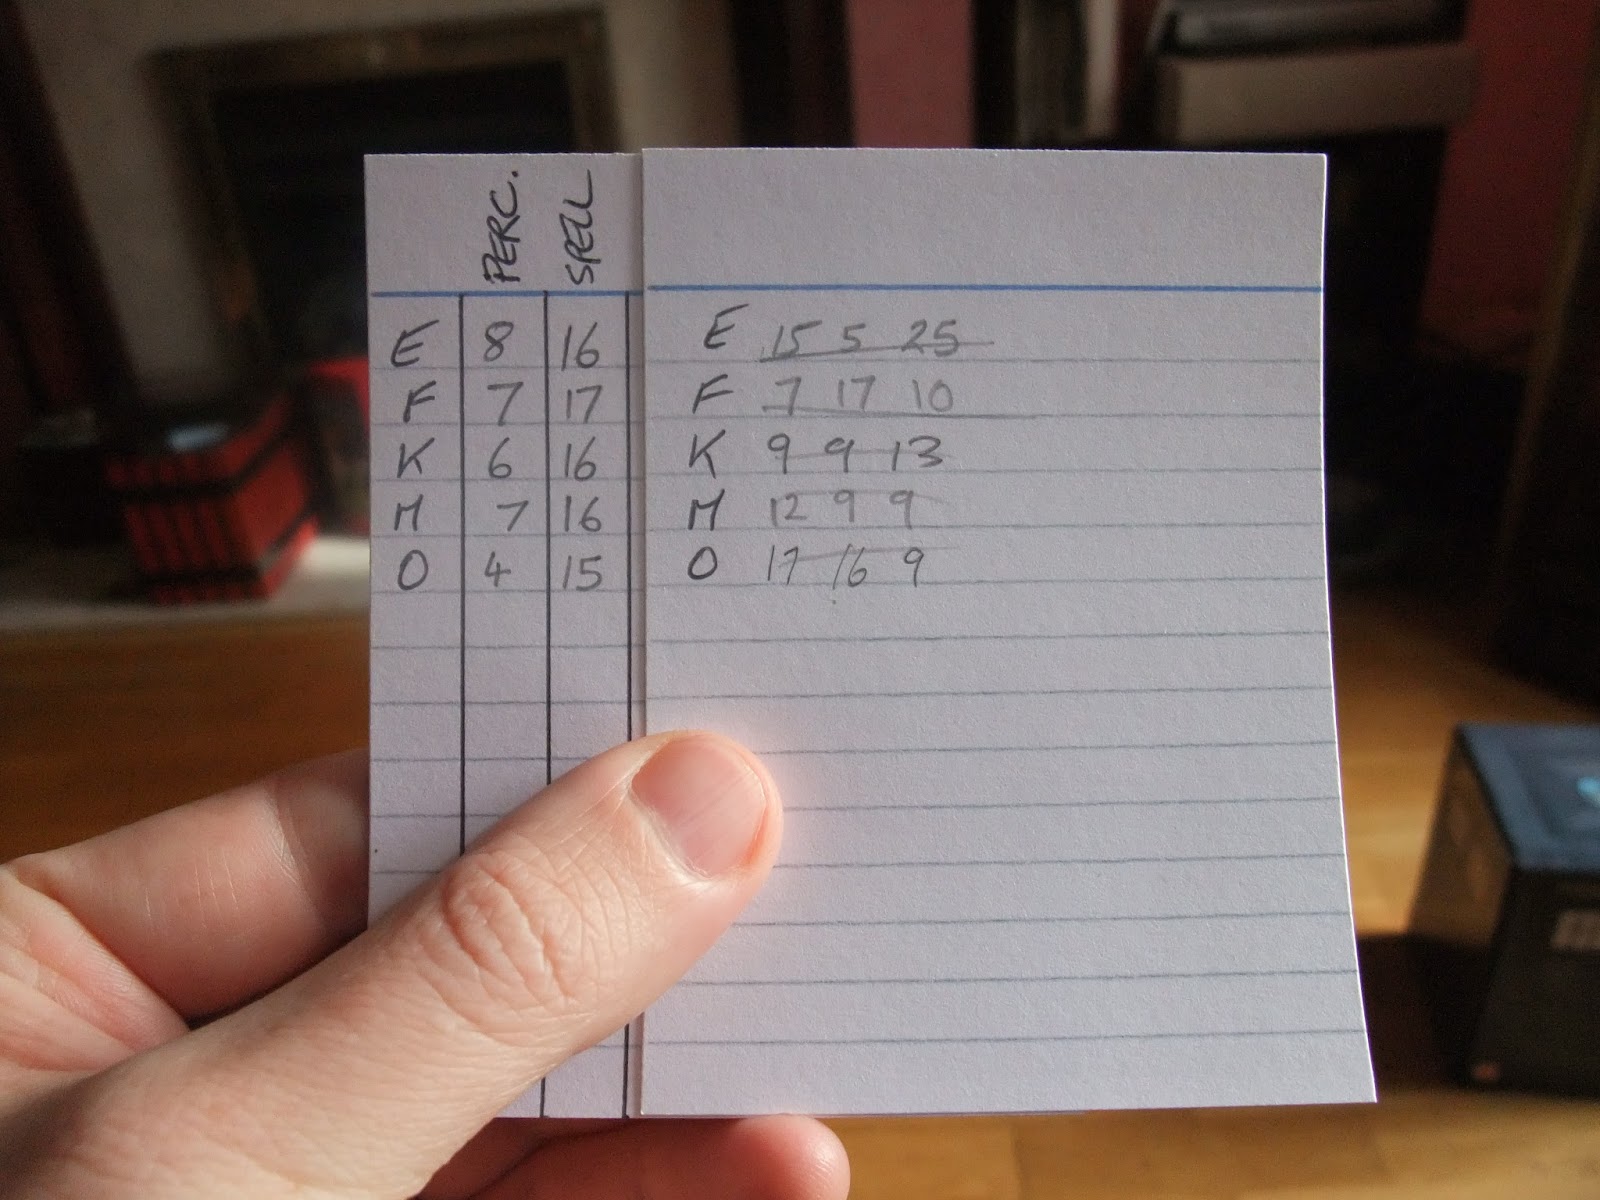 PERC. SPELL
E 8 16 E 15 5 25
F 7 17 F 7 17 10
K 6 16 K 9 9 13
M 7 16 M 12 9 9
O 4 15 O 17 16 9